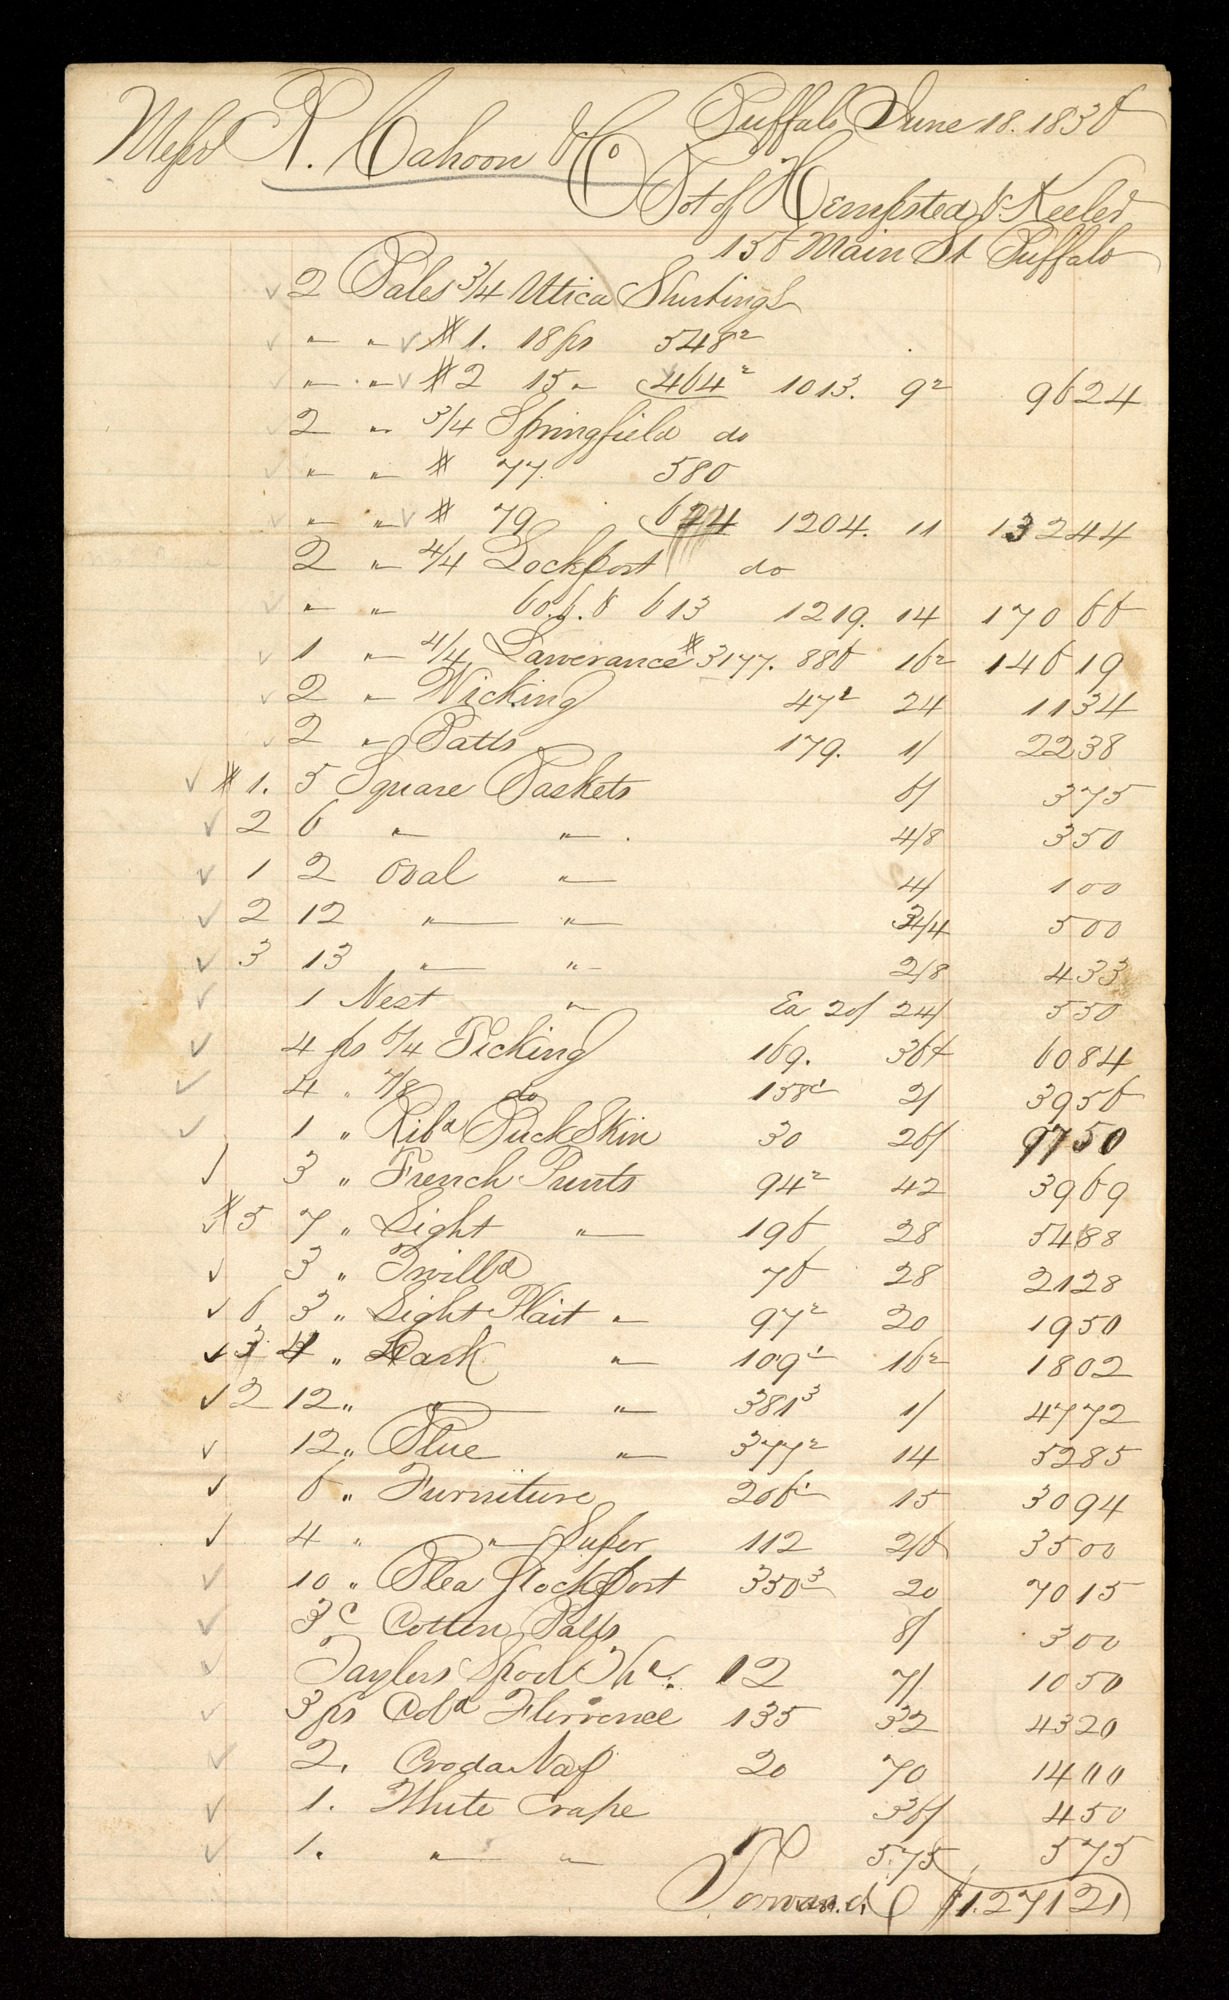 Buffalo June 18. 1836
Messrs R. Cahoon & Co
Bot of Hempsted & Keeler
156 Main St Buffalo
2 Bales 3/4 Utica Shirtings
" " # 1. 18 ps 548²
" " # 2 15 " 464² 1013. 9² 96 24
2 " 3/4 Springfield do
" " # 77 580
" " # 79 624 1204. 11 132 44
2 " 4/4 Lockport do
" " 606 613 1219. 14 170 66
1 " 4/4 Lawerance # 3177. 886 16² 146 19
2 " Wicking 47¹ 24 11 34
2 " Batts 179. 1/ 22 38
# 1. 5 Square Baskets 6/ 3 75
2 6 " " 4/8 3 50
1 2 Oval " 4/ 1 00
2 12 " " 3/4 5 00
3 13 " " 2/8 4 33
1 Nest " Ea 20/ 24/ 5 50
4 ps 6/4 Ticking 169. 36 60 84
4 " 7/8 do 158¹ 2/ 39 56
1 " Ribd Buck Skin 30 26/ 97 50
3 " French Prints 94² 42 39 69
# 5 7 " Light " 196 28 54 88
3 " Twilld 76 28 21 28
6 3 " Light Plait " 97² 20 19 50
3 4 " Dark " 109¹ 16² 18 02
2 12 " " " 381³ 1/ 47 72
12 " Blue " 377² 14 52 85
6 " Furniture 206¹ 15 30 94
4 " " Super 112 2/6 35 00
10 " Blea Stockport 350³ 20 70 15
3 C Cotton Balls 8/ 3 00
Taylers Spool Thd. 12 7/ 10 50
3 ps Cold Florrence 135 32 43 20
2. 20 70 14 00
1. White Crape 36/ 4 50
1. " " 5.75 5 75
Forward $1.271 21